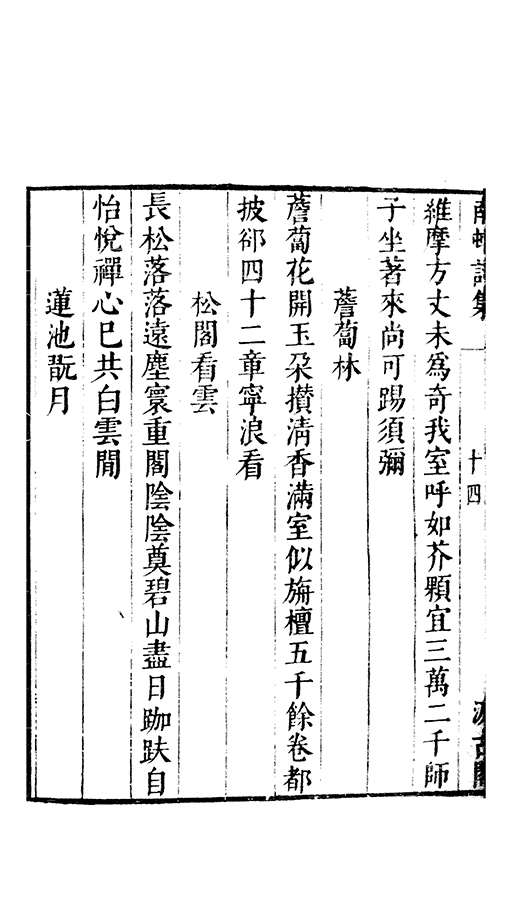 詩集 一 十四
維摩方丈未爲奇我室呼如芥顆宜三萬二千師
子坐著來尚可踢須彌
薝蔔林
薝蔔花開玉朶攢淸香滿室似旃檀五千餘卷都
披郤四十二章寧浪看
松閣看雲
長松落落遠塵寰重閣陰陰奠碧山盡日跏趺自
怡悅禪心已共白雲閒
蓮池翫月